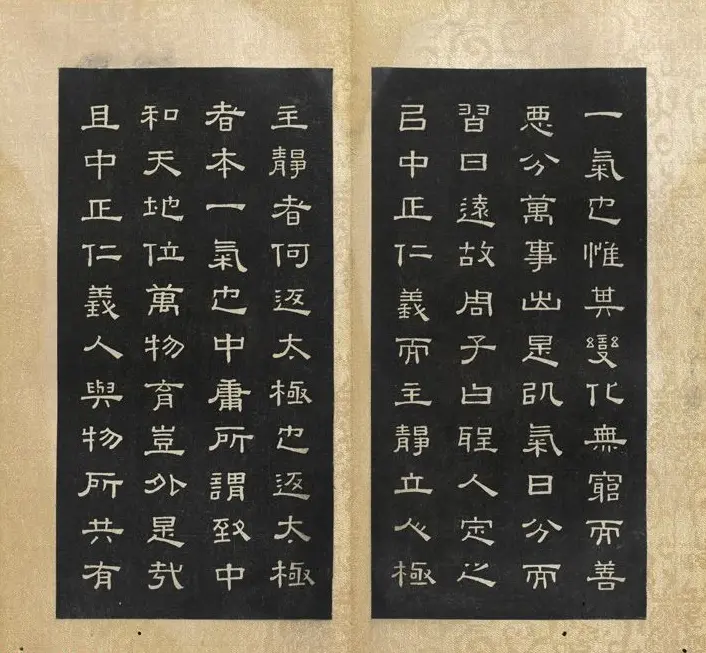 一氣也惟其變化無窮而善
惡分萬事出是氣日分而
習日遠故周子曰聖人定之
㠯中正仁義而主靜立人極
主靜者何返太極也返太極
者本一氣也中庸所謂致中
和天地位萬物育豈外是哉
且中正仁義人與物所共有